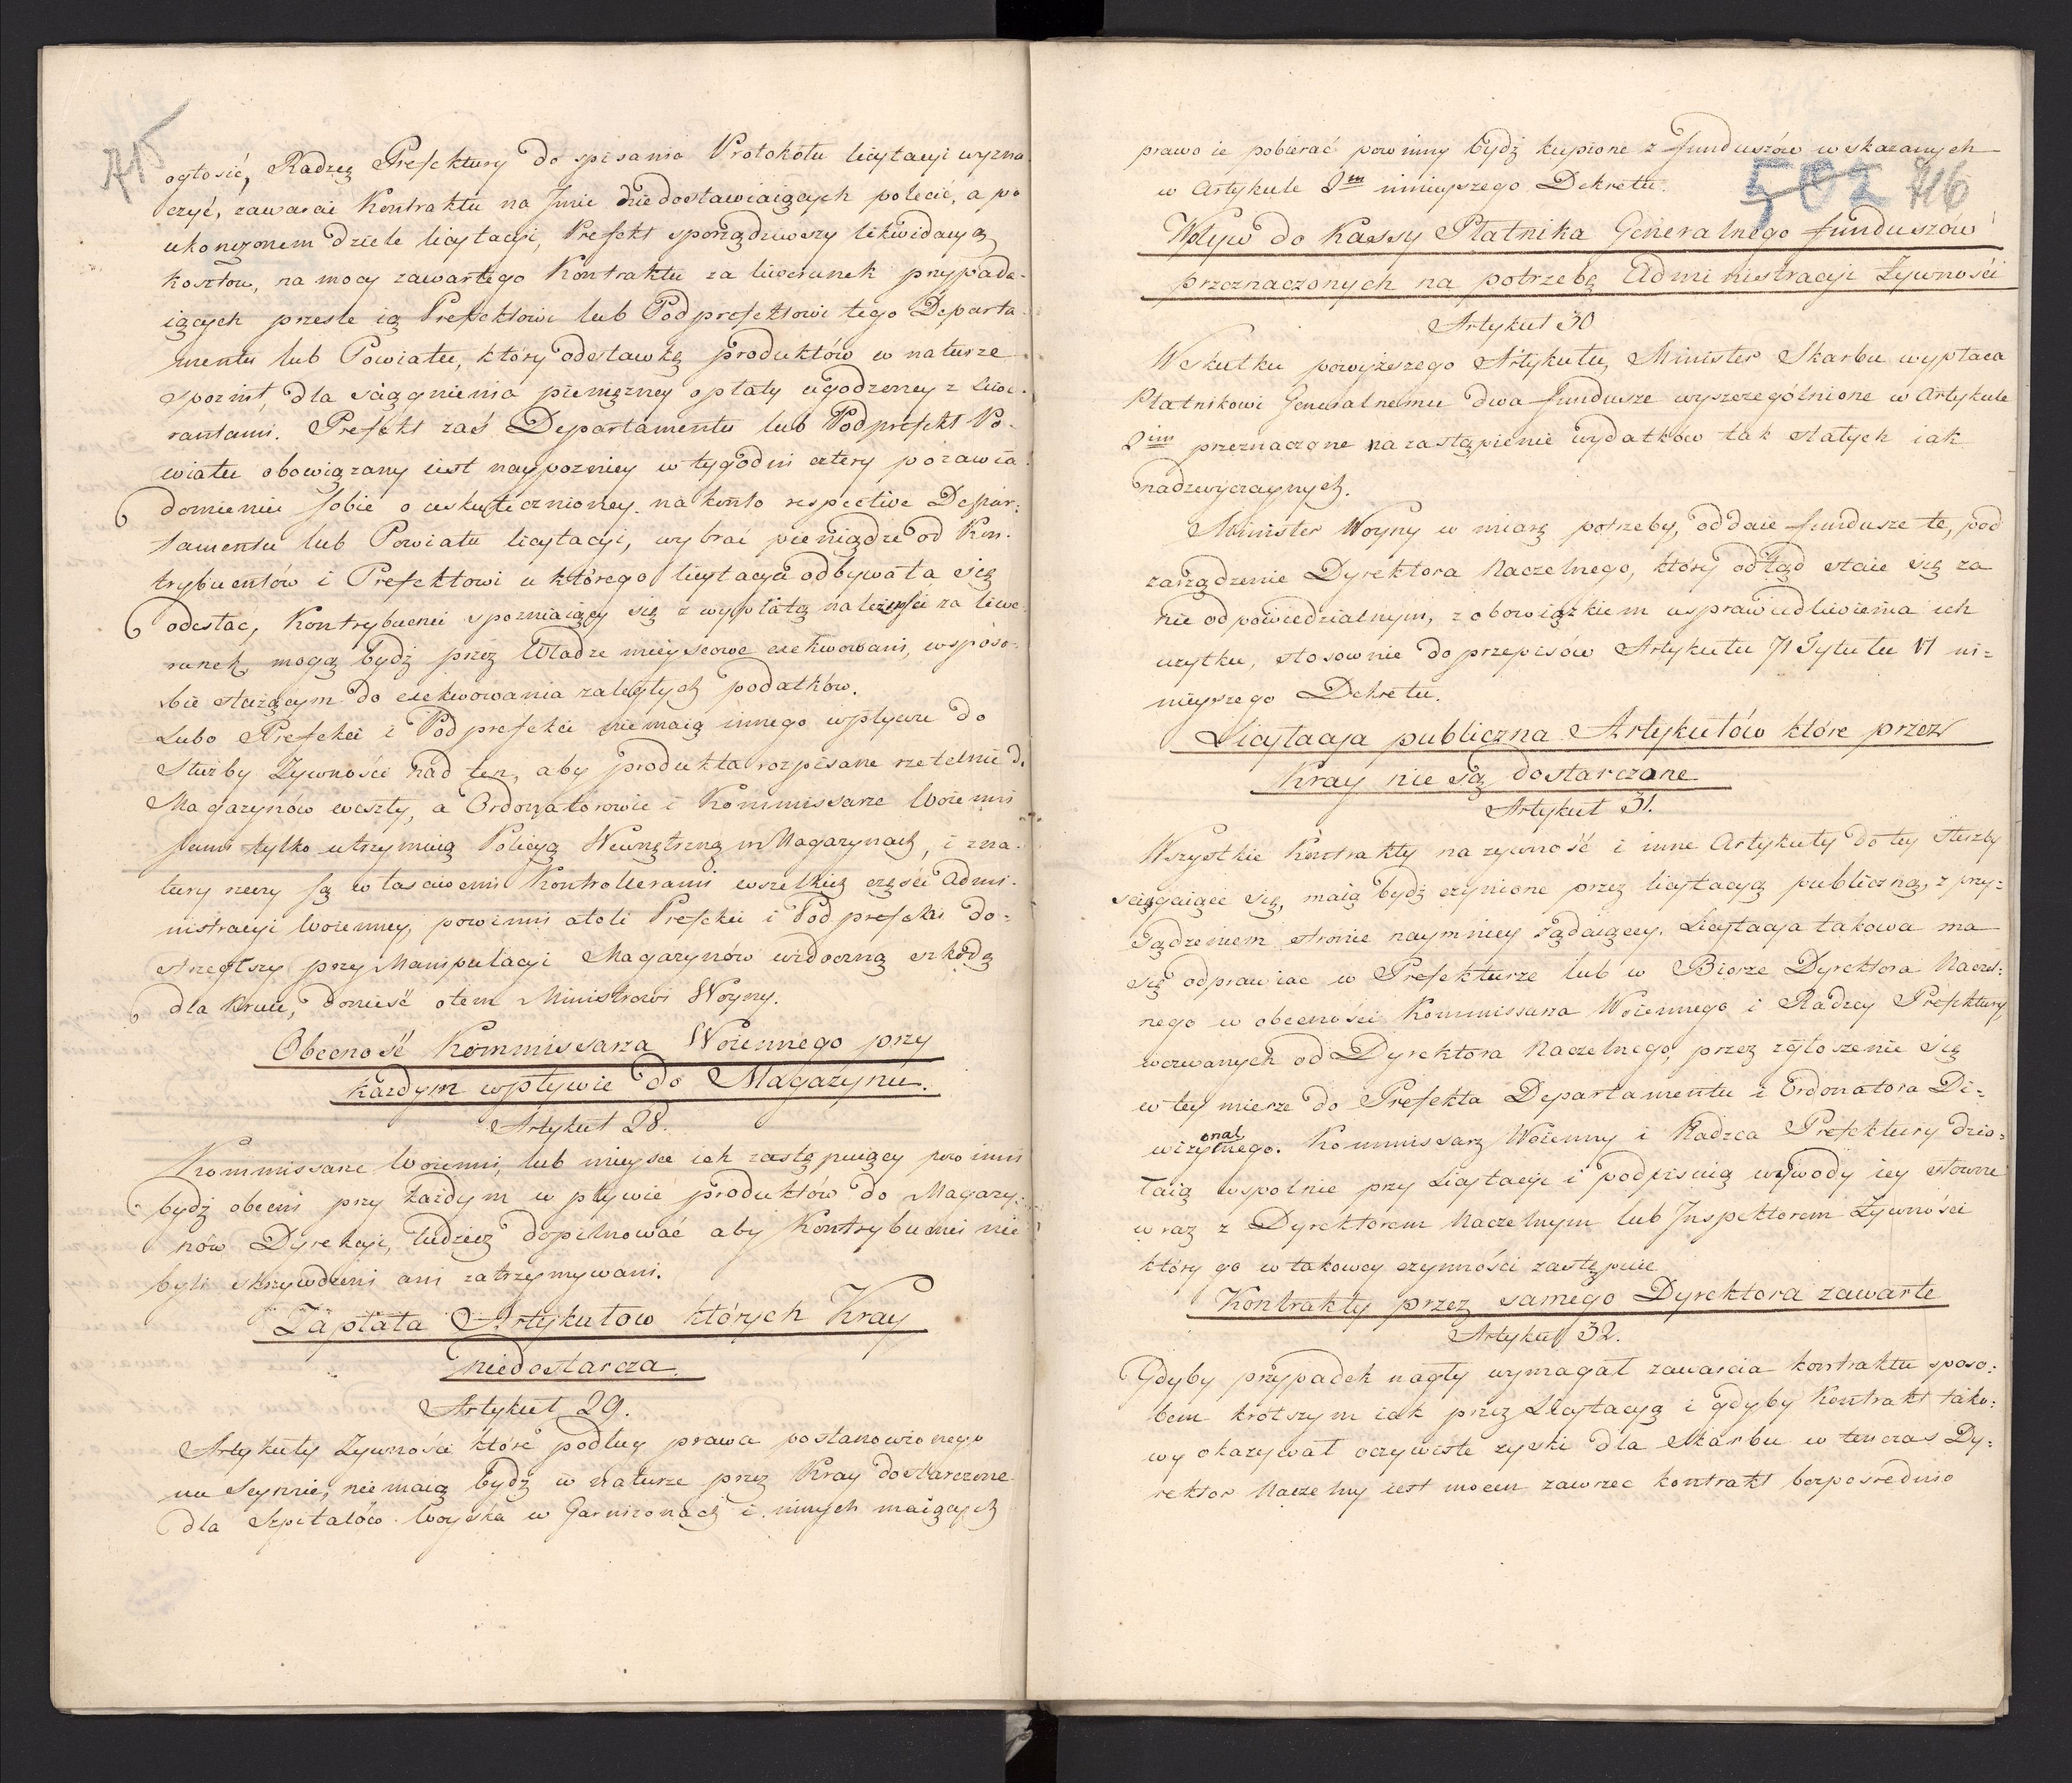 715
ogłosić, Radzcę Prefektury do spisania Protokołu licytacyi wyzna
czyć, zawarcie Kontraktu na Jmie niedostawiaiących polecić, a po
ukonczonem dziele licytacyi, Prefekt sporządziwszy likwidacyą
kosztow, na mocy zawartego Kontraktu za liwerunek przypada-
iących przesle ią Prefektowi lub Podprefektowi tego Departa-
mentu lub Powiatu, który odstawkę produktów w naturze
spoznił, dla sciągnienia pienięzney opłaty ugodzoney z liwe-
rantami. Prefekt zaś Departamentu lub Podprefekt Po-
wiatu obowiązany iest naypozniey w tygodni cztery po zawia-
domieniu sobie o uskutecznioney na konto respective Depar:
tamentu lub Powiatu licytacyi, wybrać pieniądze od Kon-
trybuentów i Prefektowi u którego licytacya odbywała się
odesłać, Kontrybuenci spozniaiący się z wypłatą należności za liwe-
runek, mogą bydź przez Władze mieyscowe exekwowani, w sposo-
bie służącym do exekwowania zaległych podatków.
Lubo Prefekci i Podprefekci niemaią innego wpływu do
Służby Żywności nad ten, aby produkta rozpisane rzetelnie do
Magazynów weszły, a Ordonatorowie i Kommissarze Woienni
sami tylko utrzymuią Policyą Wewnętrzną w Magazynach, i zna-
tury rzeczy są własciwemi Kontrollerami wszelkiey części Admi-
nistracyi Woienney, powinni atoli Prefekci i Podprefekci do-
strzegłszy przy Manipulacyi Magazynów widoczną szkodę
dla Kraiu, donieść otem Ministrowi Woyny.
Obecność Kommissarza Woiennego przy
każdym wpływie do Magazynu.
Artykuł 28.
Kommissarze Woienni, lub mieysce ich zastępuiący powinni
bydź obecni przy każdym wpływie produktów do Magazy-
nów Dyrekcyi, tudzież dopilnować aby Kontrybuenci nie
byli skrzywdzeni ani zatrzymywani.
Zapłata Artykułow których Kray
niedostarcza.
Artykuł 29.
Artykuły Żywności które podług prawa postanowionego
na Seymie, nie maią bydź w naturze przez Kray dostarczone
dla Szpitalów Woyska w Garnizonach i innych maiących
502 716
prawo ie pobierać powinny bydź kupione z funduszów wskazanych
w Artykule 2m niniejszego Dekretu.
Wpływ do Kassy Płatnika Generalnego funduszów
przeznaczonych na potrzebę Administracyi Żywności
Artykuł 30
Wskutku powyższego Artykułu, Minister Skarbu wypłaca
Płatnikowi Generalnemu dwa fundusze wyszczególnione w Artykule
2im przeznaczone na zastąpienie wydatków tak stałych iak
nadzwyczaynych.
Minister Woyny w miarę potrzeby, oddaie fundusze te, pod
zarządzenie Dyrektora Naczelnego, który odtąd staie się za
nie odpowiedzialnym, z obowiązkiem usprawiedliwienia ich
użytku, stosownie do przepisów Artykułu 71 Tytułu VI ni=
nieyszego Dekretu.
Licytacya publiczna Artykułów które przez
Kray nie są dostarczane
Artykuł 31.
Wszystkie Kontrakty na żywność i inne Artykuły do tey służby
sciągaiące się, maią bydź czynione przez licytacyą publiczną, z przy=
sądzeniem stronie naymniey żądaiącey. Licytacya takowa ma
się odprawiac w Prefekturze lub w Biorze Dyrektora Naczel:
nego w obecności Kommissarza Woiennego i Radzcy Prefektury
wezwanych od Dyrektora Naczelnego, przez zgłoszenie się
w tey mierze do Prefekta Departamentu i Ordonatora Di=
wizyonalnego. Kommissarz Woienny i Radzca Prefektury dzia-
łaią wspolnie przy Licytacyi i podpisuią wywody iey słowne
wraz z Dyrektorem Naczelnym lub Inspektorem Żywności
który go w takowey czynności zastępuie.
Kontrakty przez samego Dyrektora zawarte
Artykuł 32.
Gdyby przypadek nagły wymagał zawarcia kontraktu sposo:
bem krótszym iak przez Licytacyą i gdyby Kontrakt tako:
wy okazywał oczywiste zyski dla Skarbu w tenczas Dy:
rektor Naczelny iest mocen zawrzec kontrakt bezpośrednio